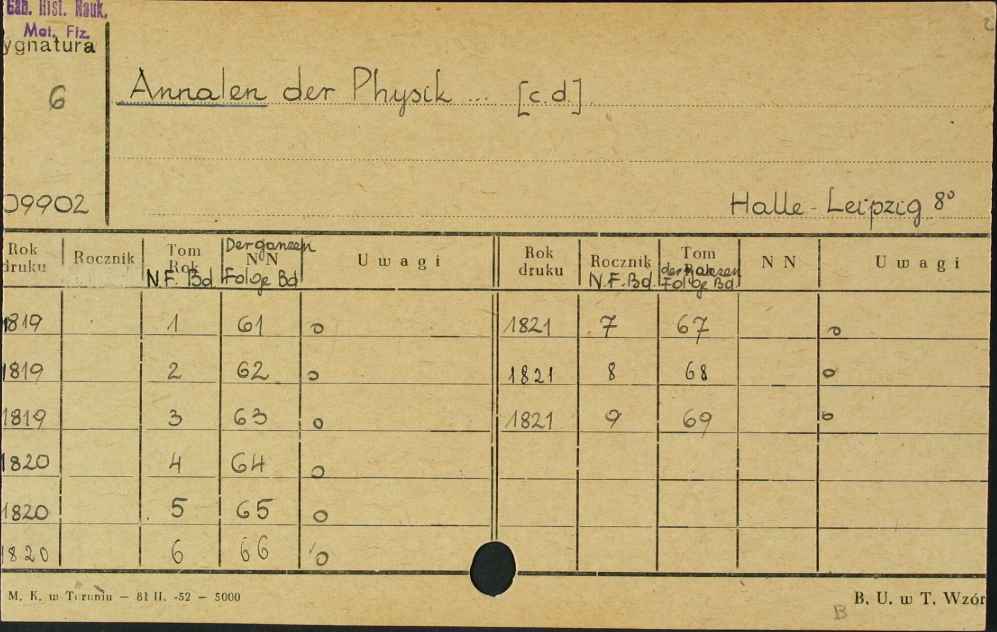 Gab. Hist. Nauk.
Mat. Fiz.
ygnatura
6
Annalen der Physik ... [c.d.]
09902
Halle-Leipzig 8°
Rok druku Rocznik Tom Rok N.F. Bd. Der ganzen NN Folge Bd Uwagi Rok druku Rocznik N.F. Bd. Tom der ganzen Folge Bd. NN Uwagi
1819 1 61 o 1821 7 67 o
1819 2 62 o 1821 8 68 o
1819 3 63 o 1821 9 69 o
1820 4 64 o
1820 5 65 o
1820 6 66 o
M. K. w Toruniu — 81 II. -52 — 5000
B. U. w T. Wzór
B